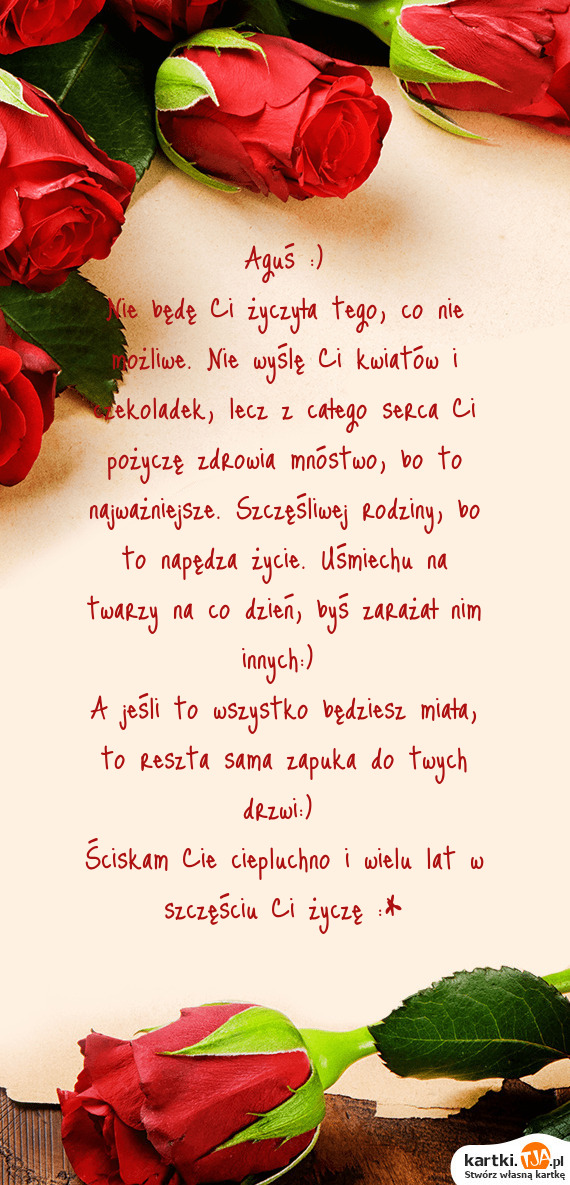 Aguś :)
Nie będę Ci życzyła tego, co nie
możliwe. Nie wyślę Ci kwiatów i
czekoladek, lecz z całego serca Ci
pożyczę zdrowia mnóstwo, bo to
najważniejsze. Szczęśliwej rodziny, bo
to napędza życie. Uśmiechu na
twarzy na co dzień, byś zarażał nim
innych:)
A jeśli to wszystko będziesz miała,
to reszta sama zapuka do twych
drzwi:)
Ściskam Cie ciepluchno i wielu lat w
szczęściu Ci życzę :*
kartki.TJA.pl
Stwórz własną kartkę